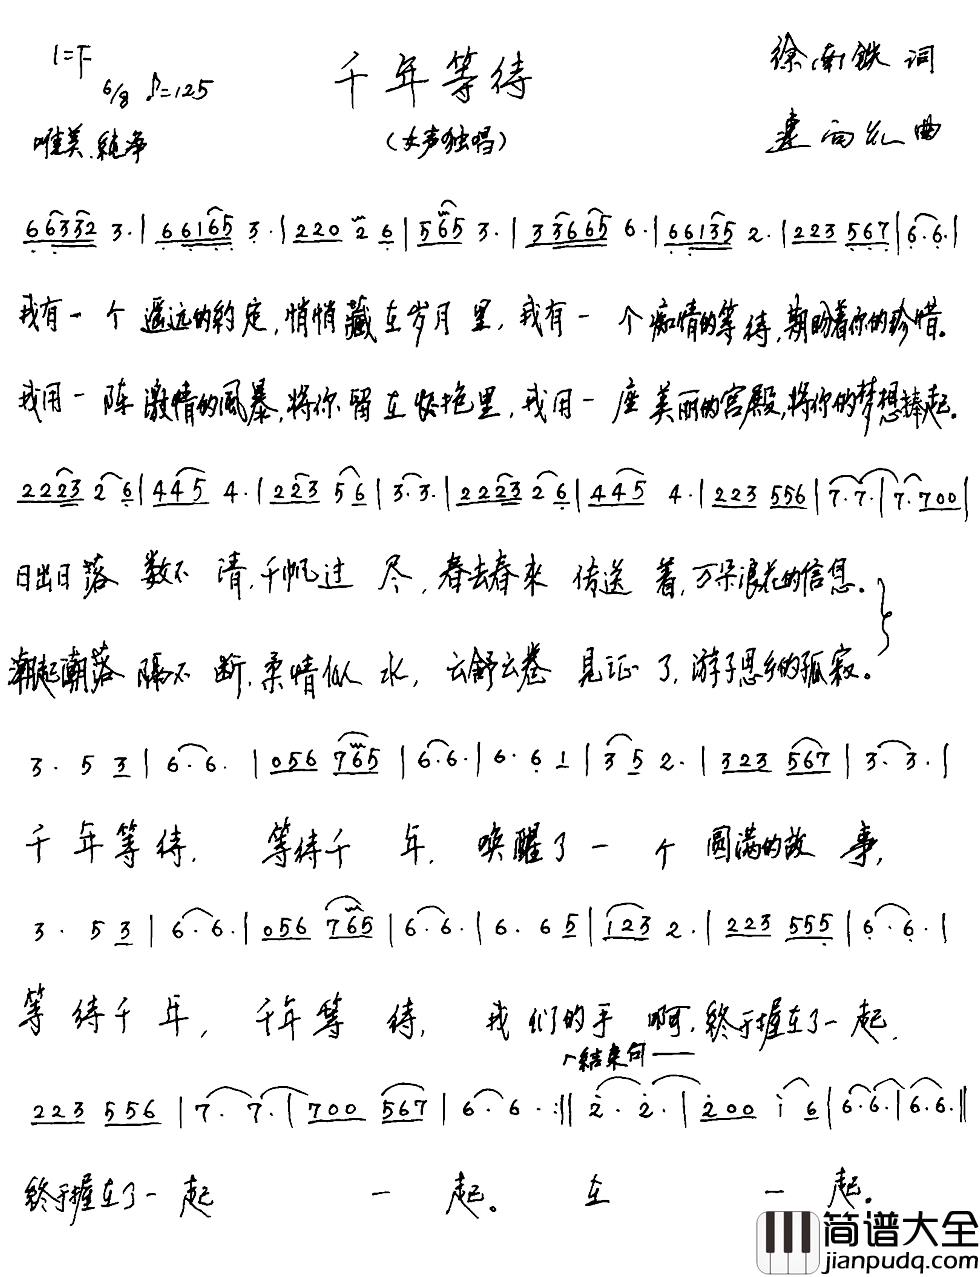 1=F 千年等待 徐南铁 词
6/8 ♪=125
唯美、纯净 (女声独唱) 曲
66332 3·|66165 3·|220 2 6|5665 3·|336665 6·|66135 2·|223 567|6·6·|
我有一个遥远的约定,悄悄藏在岁月里,我有一个痴情的等待,期盼着你的珍惜。
我用一阵激情的风暴,将你留在怀抱里,我用一座美丽的宫殿,将你的梦想捧起。
2223 2 6|445 4·|223 5 6|3·3·|2223 2 6|445 4·|223 556|7·7·|7·700|
日出日落 数不 清,千帆过 尽,春去春来 传送 着,万朵浪花的信息。
潮起潮落 隔不 断,柔情似 水,云舒云卷 见证 了,游子思乡的孤寂。
3· 5 3|6·6·|056 765|6·6·|6·6 1|3 5 2·|323 567|3·3·|
千 年等 待, 等待千 年,唤醒了一 个 圆满的故 事,
3· 5 3|6·6·|056 765|6·6·|6·6 5|123 2·|223 555|6·6·|
等 待千 年, 千年等 待, 我们的手 啊,终于握在了一起,
结束句
223 556|7·7·|700 567|6·6·:‖2·2·|200 i 6|6·6·|6·6·‖
终于握在了一 起 一 起。 在 一 起。
简谱大全
jianpudq.com